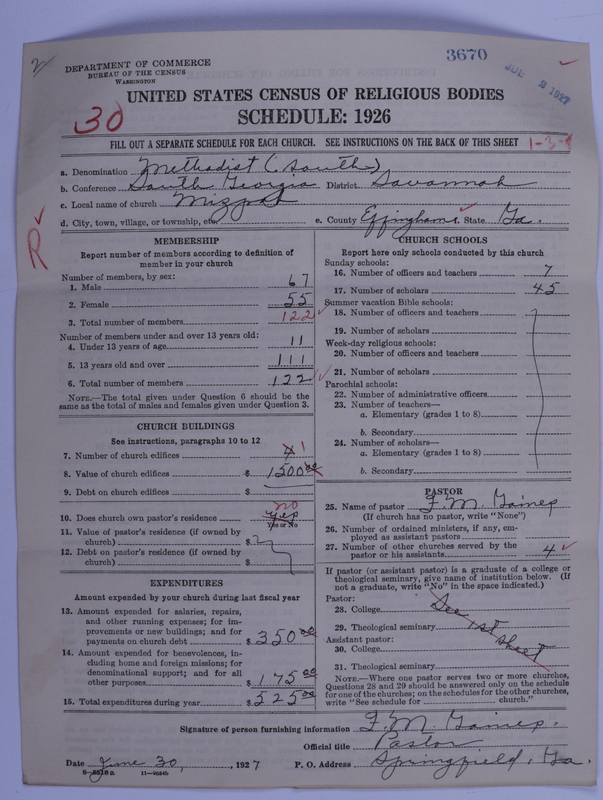 3670
JUL 2 1927
DEPARTMENT OF COMMERCE
BUREAU OF THE CENSUS
WASHINGTON
UNITED STATES CENSUS OF RELIGIOUS BODIES
SCHEDULE: 1926
30
FILL OUT A SEPARATE SCHEDULE FOR EACH CHURCH. SEE INSTRUCTIONS ON THE BACK OF THIS SHEET
a. Denomination Methodist (South)
b. Conference South Georgia District Savannah
c. Local name of church Mizpah
d. City, town, village, or township, etc. e. County Effingham f. State Ga.
R
MEMBERSHIP
Report number of members according to definition of
member in your church
Number of members, by sex:
1. Male 67
2. Female 55
3. Total number of members 122
Number of members under and over 13 years old:
4. Under 13 years of age 11
5. 13 years old and over 111
6. Total number of members 122
NOTE.—The total given under Question 6 should be the
same as the total of males and females given under Question 3.
CHURCH BUILDINGS
See instructions, paragraphs 10 to 12
7. Number of church edifices 1
8. Value of church edifices $ 1500 00
9. Debt on church edifices $
10. Does church own pastor's residence no yes
Yes or No
11. Value of pastor's residence (if owned by
church) $
12. Debt on pastor's residence (if owned by
church) $
EXPENDITURES
Amount expended by your church during last fiscal year
13. Amount expended for salaries, repairs,
and other running expenses; for im-
provements or new buildings; and for
payments on church debt $ 350 00
14. Amount expended for benevolences, in-
cluding home and foreign missions; for
denominational support; and for all
other purposes $ 175 00
15. Total expenditures during year $ 525 00
CHURCH SCHOOLS
Report here only schools conducted by this church
Sunday schools:
16. Number of officers and teachers 7
17. Number of scholars 45
Summer vacation Bible schools:
18. Number of officers and teachers
19. Number of scholars
Week-day religious schools:
20. Number of officers and teachers
21. Number of scholars
Parochial schools:
22. Number of administrative officers
23. Number of teachers—
a. Elementary (grades 1 to 8)
b. Secondary
24. Number of scholars—
a. Elementary (grades 1 to 8)
b. Secondary
PASTOR
25. Name of pastor F. M. Gaines
(If church has no pastor, write "None")
26. Number of ordained ministers, if any, em-
ployed as assistant pastors
27. Number of other churches served by the
pastor or his assistants 4
If pastor (or assistant pastor) is a graduate of a college or
theological seminary, give name of institution below. (If
not a graduate, write "No" in the space indicated.)
Pastor:
28. College See
29. Theological seminary 1st
Assistant pastor:
30. College sheet
31. Theological seminary
NOTE.—Where one pastor serves two or more churches,
Questions 28 and 29 should be answered only on the schedule
for one of the churches; on the schedules for the other churches,
write "See schedule for church."
Signature of person furnishing information F. M. Gaines
Official title Pastor
Date June 30, 1927 P. O. Address Springfield, Ga.